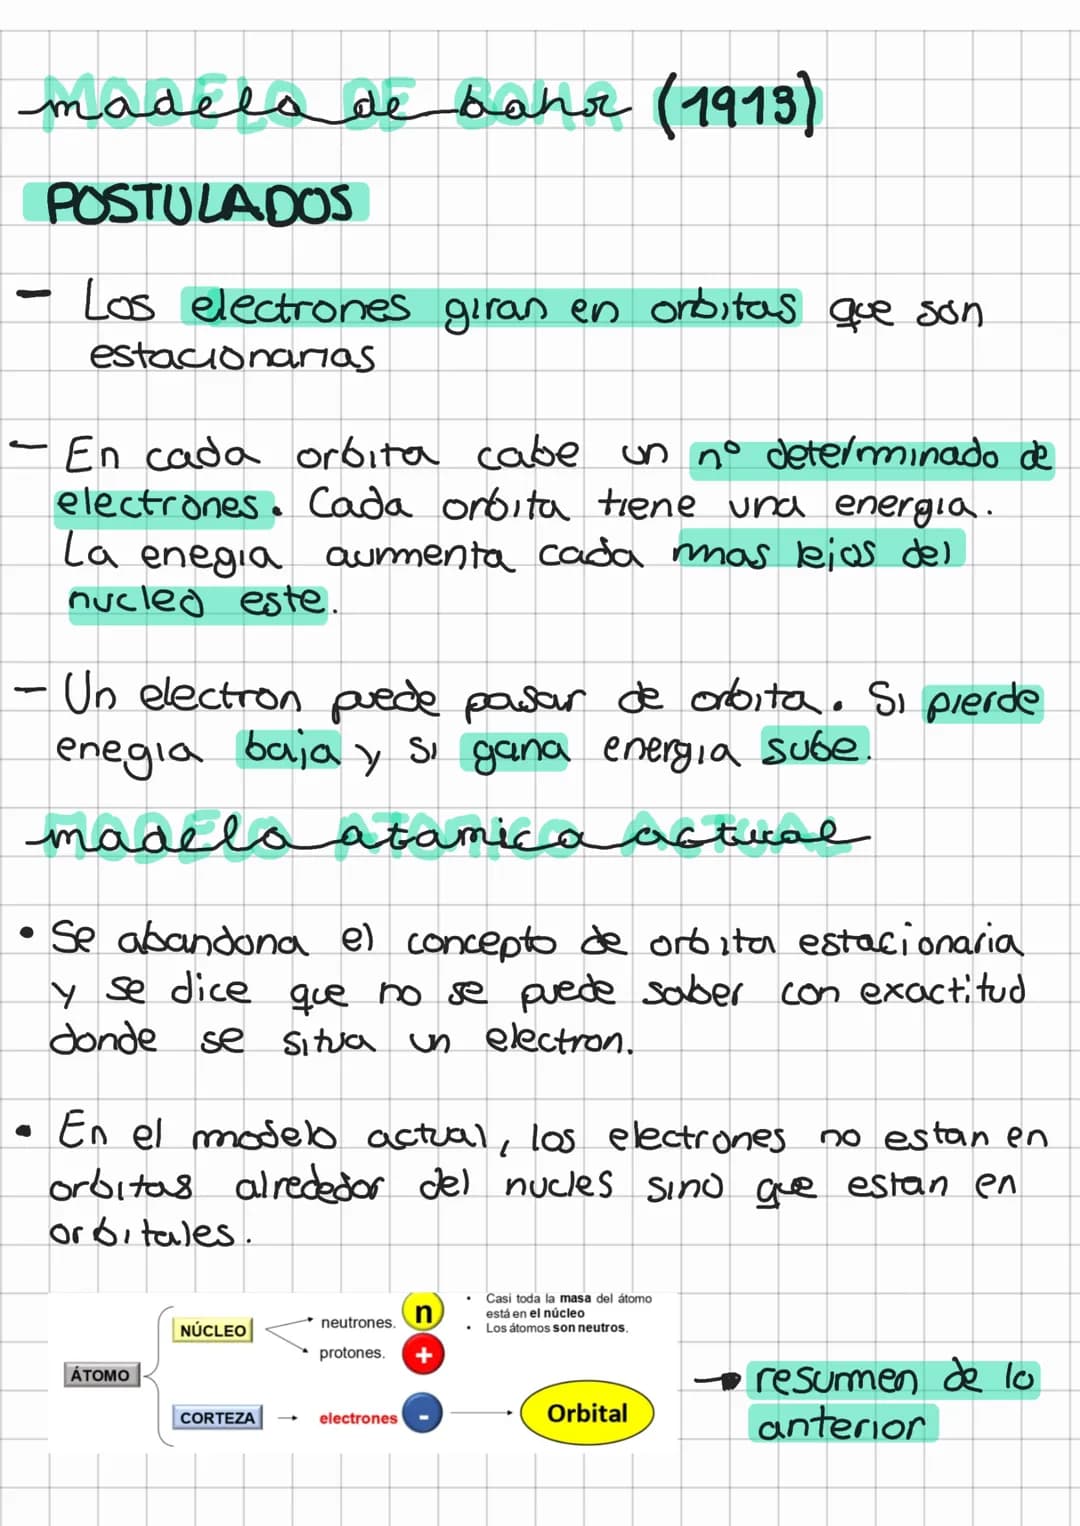 modelo de bohr (1913)
POSTULADOS
- Los electrones giran en orbitas que son
estacionarias
- En cada orbita cabe un nº determinado de
electrones. Cada orbita tiene una energia.
La enegia aumenta cada mas lejos del
nucleo este.
- Un electron puede pasar de orbita. Si pierde
enegia baja y si gana energia sube.
modelo atomico actual
• Se abandona el concepto de orbita estacionaria
y se dice que no se puede saber con exactitud
donde se situa un electron.
• En el modelo actual, los electrones no estan en
orbitas alrededor del nucles sino que estan en
orbitales.
ÁTOMO
NÚCLEO
neutrones. n
protones. +
• Casi toda la masa del átomo
está en el núcleo
• Los átomos son neutros.
CORTEZA → electrones - → Orbital
→ resumen de lo
anterior